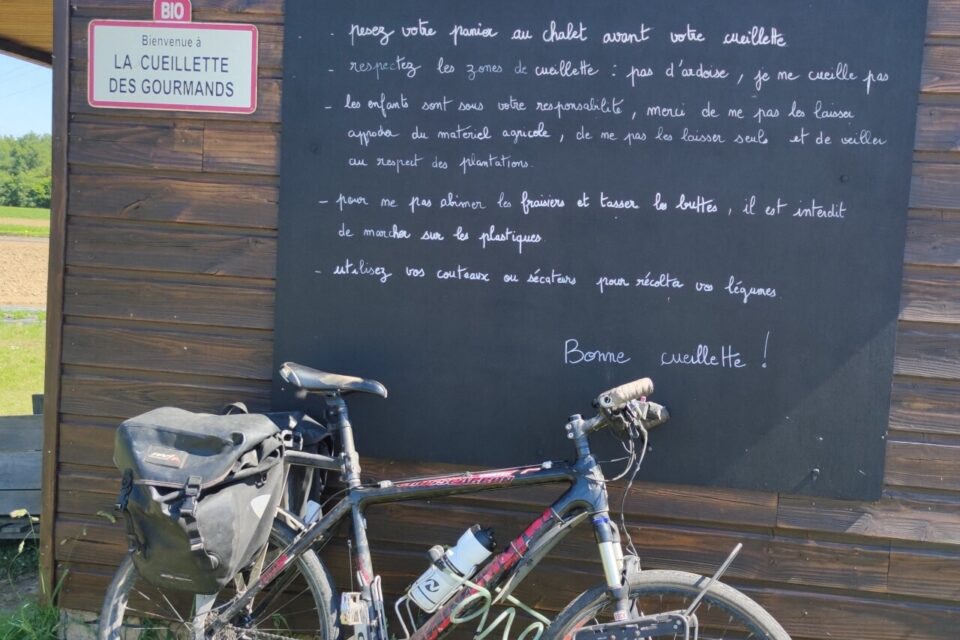 BIO
Bienvenue à
LA CUEILLETTE
DES GOURMANDS
- pesez votre panier au chalet avant votre cueillette
- respectez les zones de cueillette : pas d'ardoise, je ne cueille pas
- les enfants sont sous votre responsabilité, merci de ne pas les laisser
approcher du matériel agricole, de ne pas les laisser seuls et de veiller
au respect des plantations.
- pour ne pas abimer les fraisiers et tasser les buttes, il est interdit
de marcher sur les plastiques
- utilisez vos couteaux ou sécateurs pour récolter vos légumes.
Bonne cueillette !